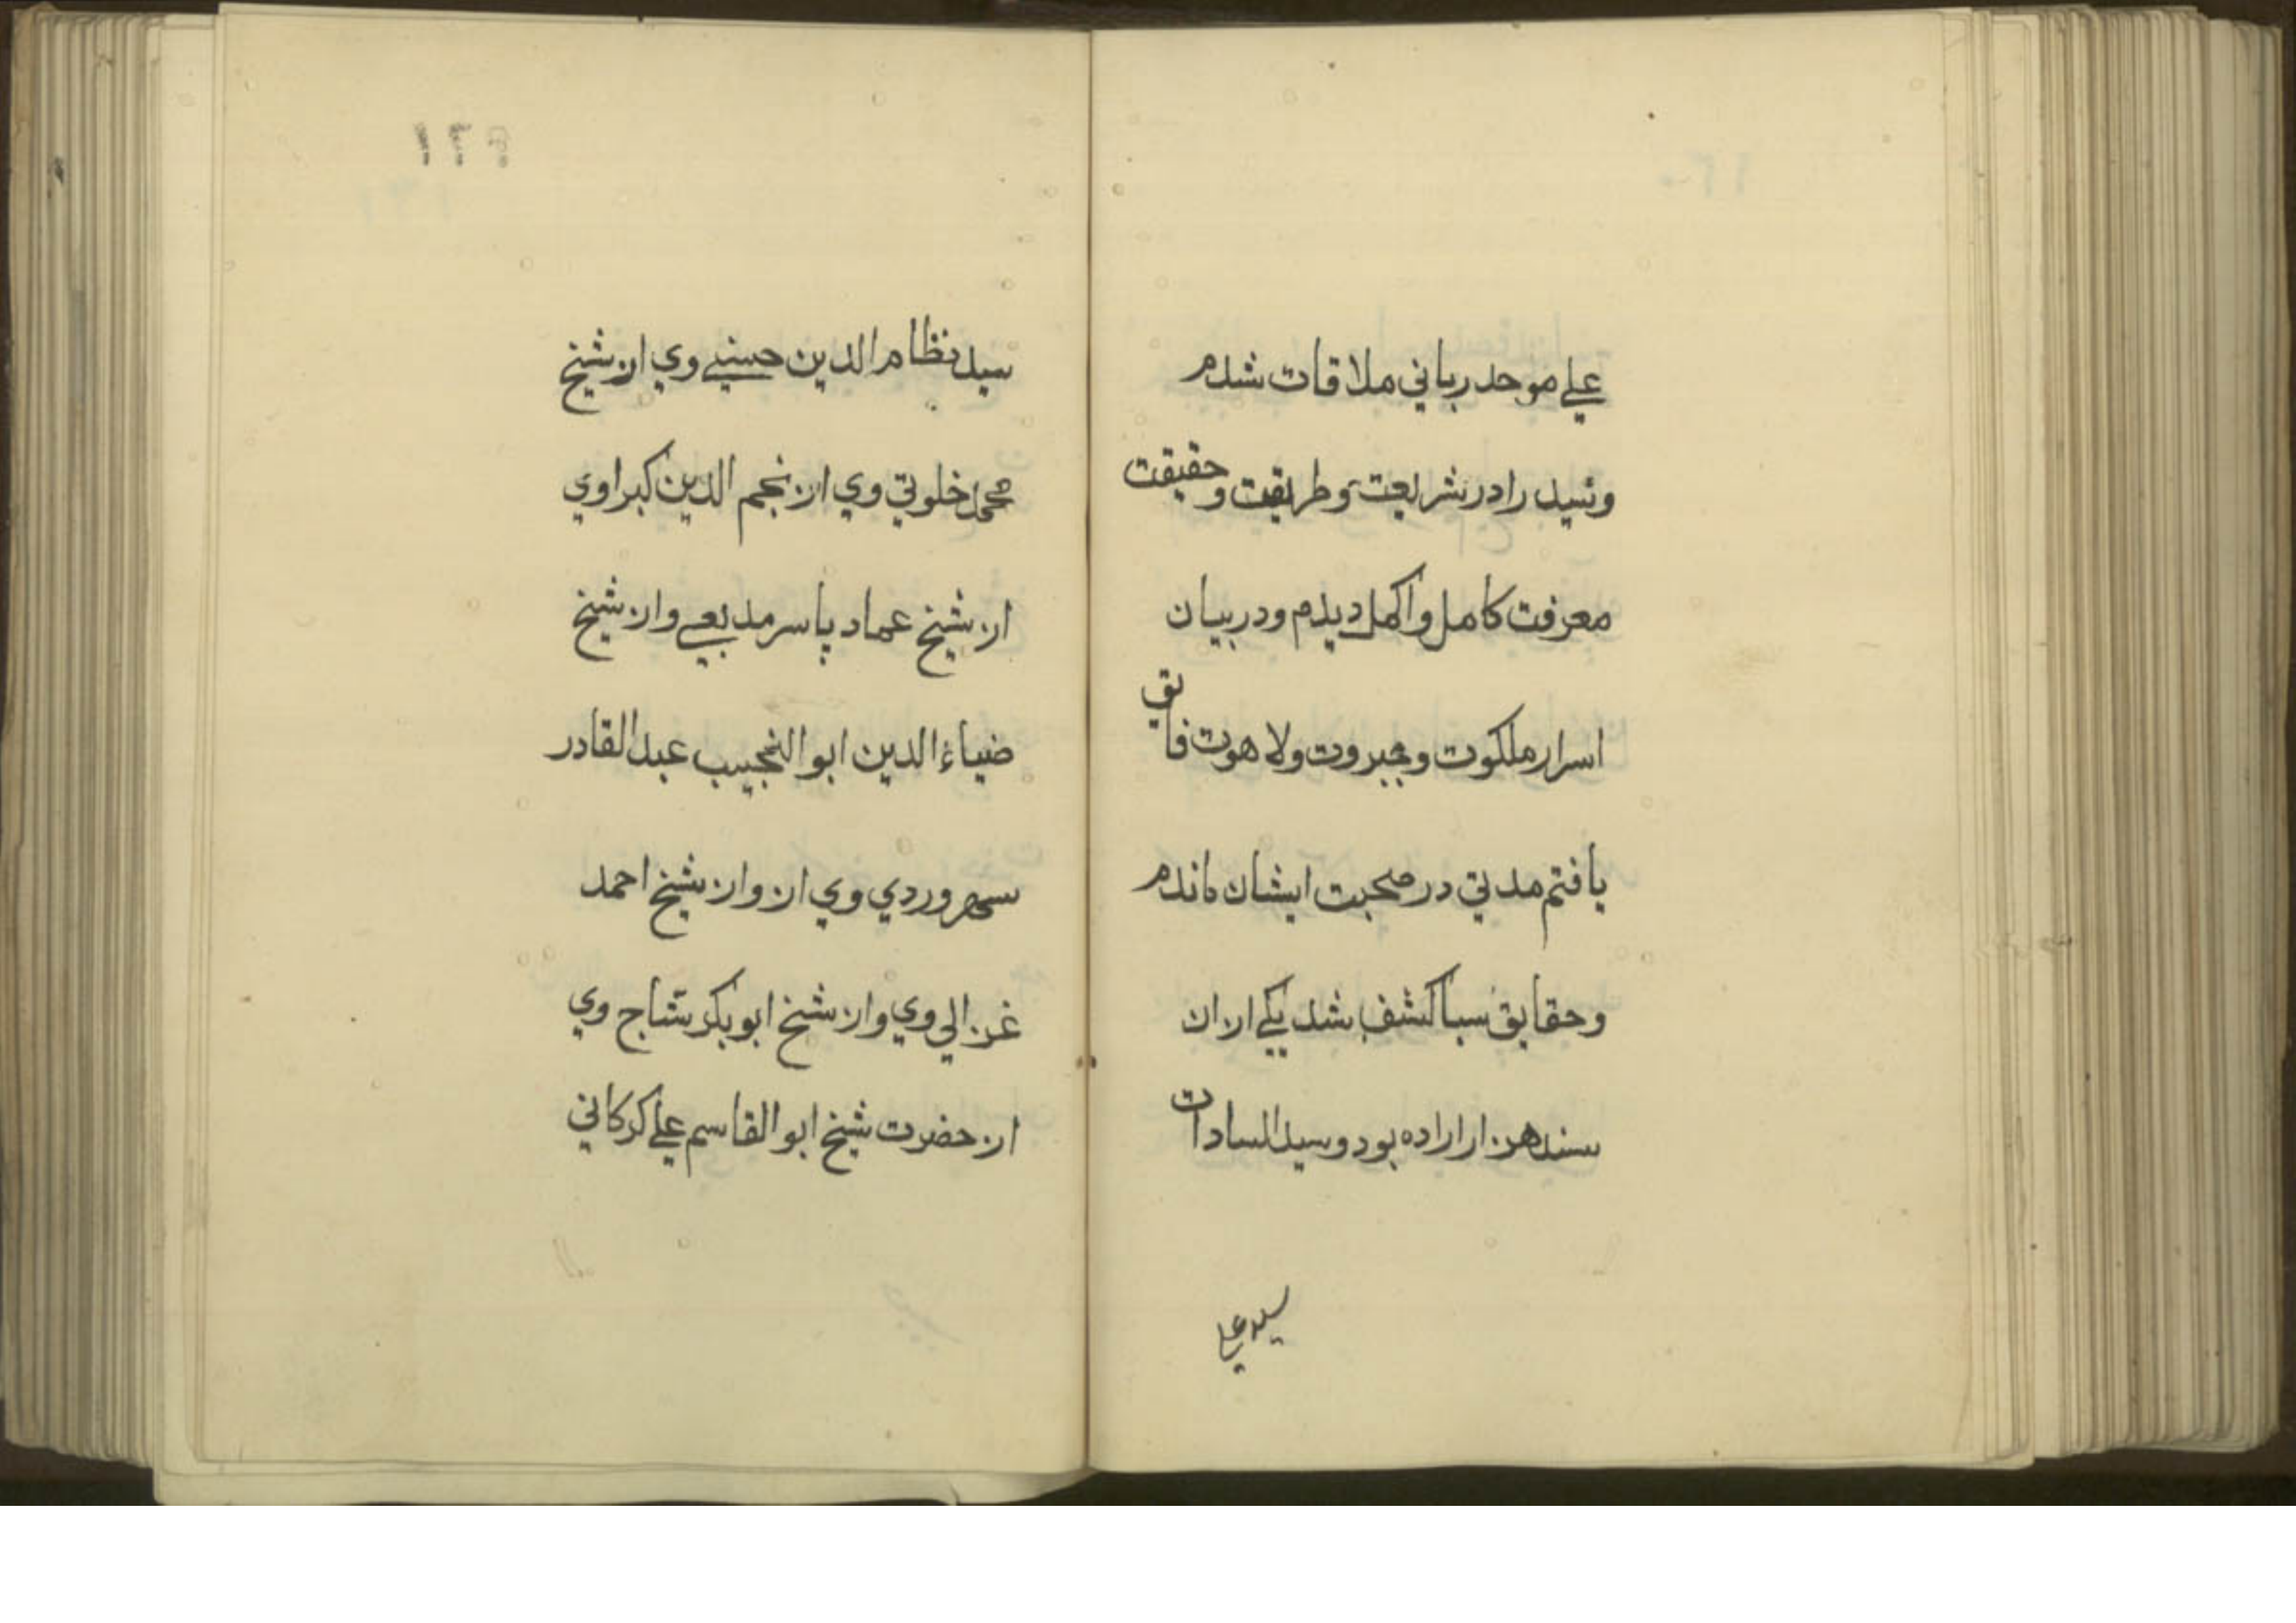 علي موحد رباني ملاقات شدم
وسيد را در شريعت وطريقت وحقيقت
معرفت كامل واكمل ديدم ودر بيان
اسرار ملكوت وجبروت ولاهوت فايق
يافتم مدتي در صحبت ايشان ماندم
وحقايق سبا كشف شد يكي ازان
سند هزار اراده بود وسيد السادات
سيد نظام الدين حسيني وي از شيخ
محمد خلوتي وي از نجم الدين كبراوي
از شيخ عماد ياسر مدبعي واز شيخ
ضياء الدين ابو النجيب عبد القادر
سهروردي وي از واز شيخ احمد
غزالي وي واز شيخ ابو بكر نساج وي
از حضرت شيخ ابو القاسم علي كركاني